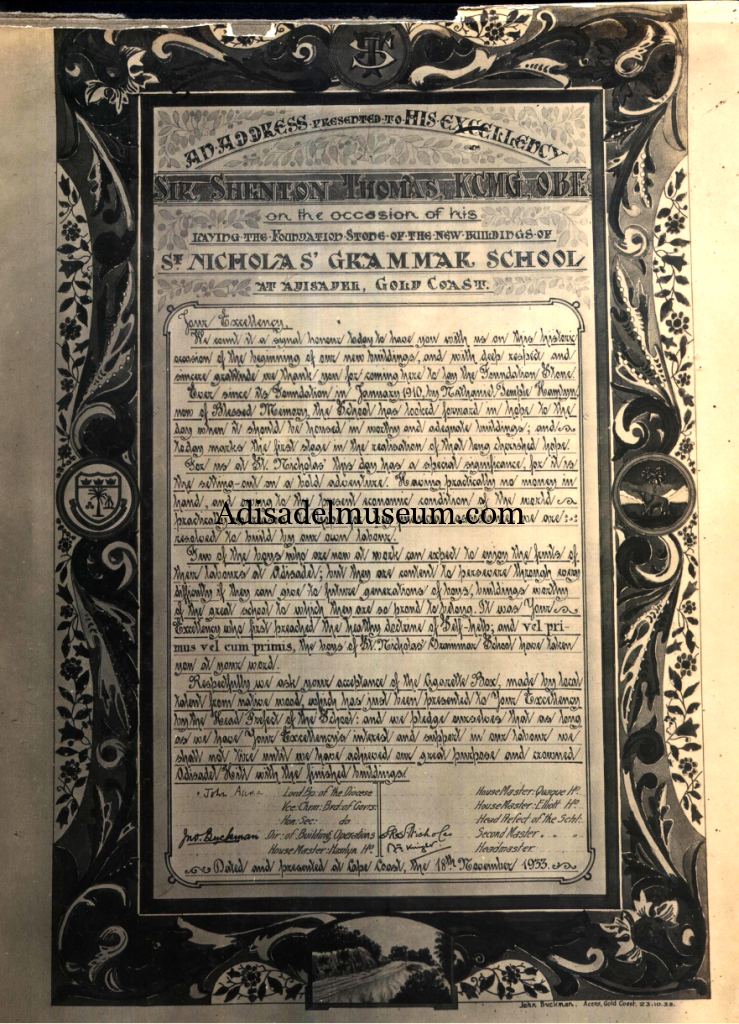 AN ADDRESS PRESENTED TO HIS EXCELLENCY
SIR SHENTON THOMAS, KCMG, OBE
on the occasion of his
LAYING THE FOUNDATION STONE OF THE NEW BUILDINGS OF
ST NICHOLAS' GRAMMAR SCHOOL
AT ADISADEL, GOLD COAST.
Your Excellency,
We count it a signal honour today to have you with us on this historic
occasion of the beginning of our new buildings, and with deep respect and
sincere gratitude we thank you for coming here to lay the Foundation Stone.
Ever since its Foundation in January 1910, by Nathaniel Temple Hamlyn,
now of Blessed Memory, the School has looked forward in hope to the
day when it should be housed in worthy and adequate buildings; and
today marks the first stage in the realisation of that long cherished hope.
For us at St. Nicholas this day has a special significance, for it is
the setting-out on a bold adventure. Having practically no money in
hand, and owing to the present economic condition of the world
Adisadelmuseum.com
we are
resolved to build by our own labour.
Few of the boys who are now at work can expect to enjoy the fruits of
their labours at Adisadel; but they are content to persevere through every
difficulty if they can give to future generations of boys, buildings worthy
of the great school to which they are so proud to belong. It was Your
Excellency who first preached the healthy doctrine of Self-help; and vel pri-
mus vel cum primis, the boys of St. Nicholas' Grammar School have taken
you at your word.
Respectfully we ask your acceptance of the Cigarette Box, made by local
talent from native wood, which has just been presented to Your Excellency
by the Head Prefect of the School: and we pledge ourselves that as long
as we have Your Excellency's interest and support in our labour we
shall not tire until we have achieved our great purpose and crowned
Adisadel Hill with the finished buildings.
John Accra Lord Bp: of the Diocese House Master: Quaque Ho.
Vice Chrm: Brd of Govrs: House Master: Elliott Ho.
Hon: Sec: do Head Prefect of the Schl:
Jno. Buckman Dir: of Building Operations Second Master
House Master: Hamlyn Ho. Headmaster
Dated and presented at Cape Coast, the 18th November 1933.
John Buckman, Accra, Gold Coast, 23.10.33.